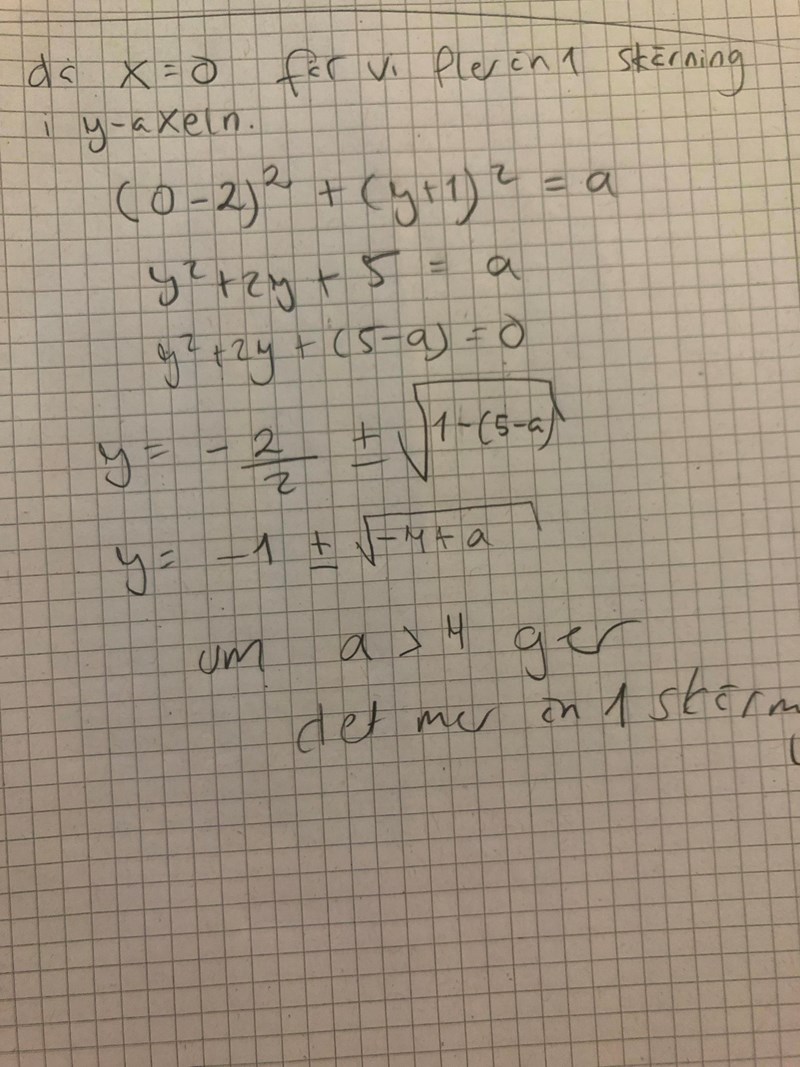 då x=0 får vi fler än 1 skärning
i y-axeln.
(0-2)² + (y+1)² = a
y²+2y+5 = a
y²+2y+(5-a)=0
y= -2/2 ± √1-(5-a)
y= -1 ± √-4+a
om a > 4 ger
det mer än 1 skärn